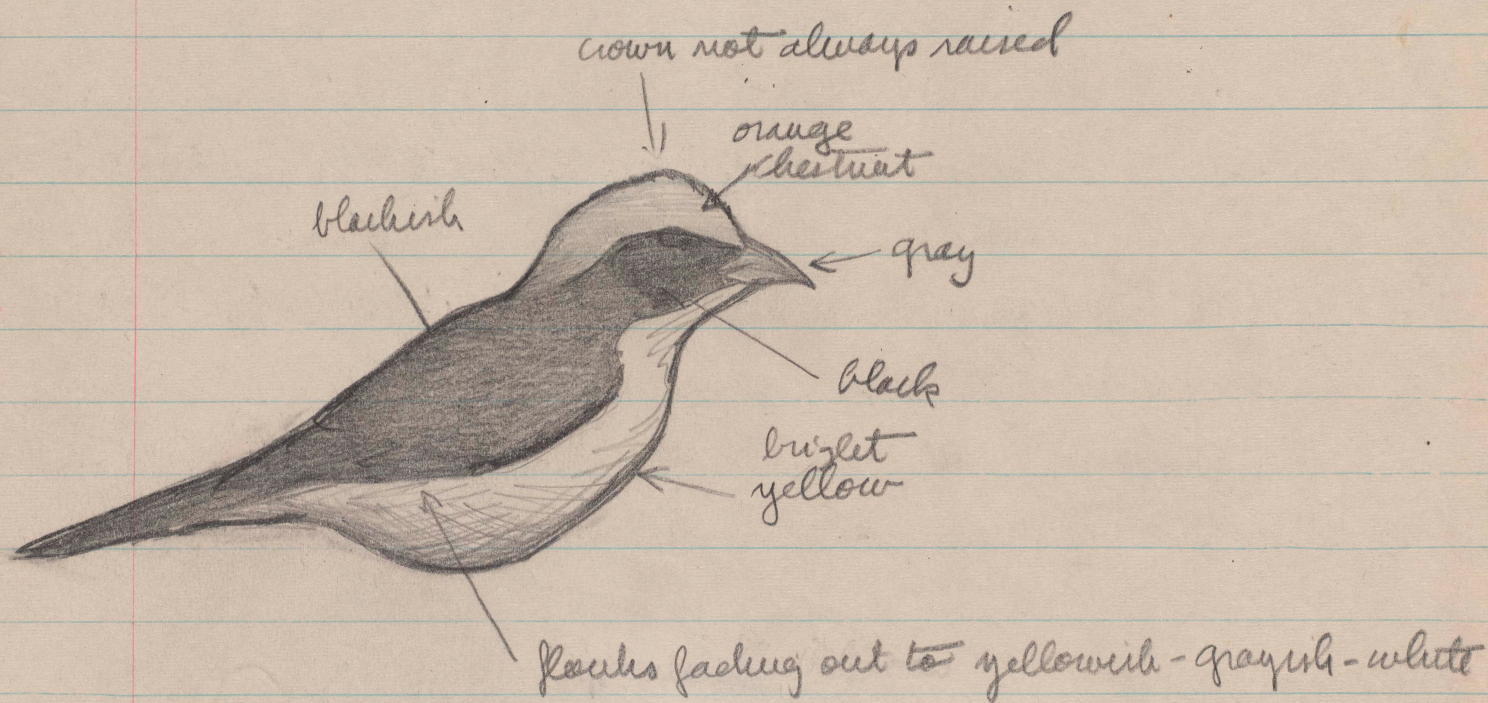 crown not always raised
orange
chestnut
blackish
gray
black
bright
yellow
flanks fading out to yellowish-grayish-white